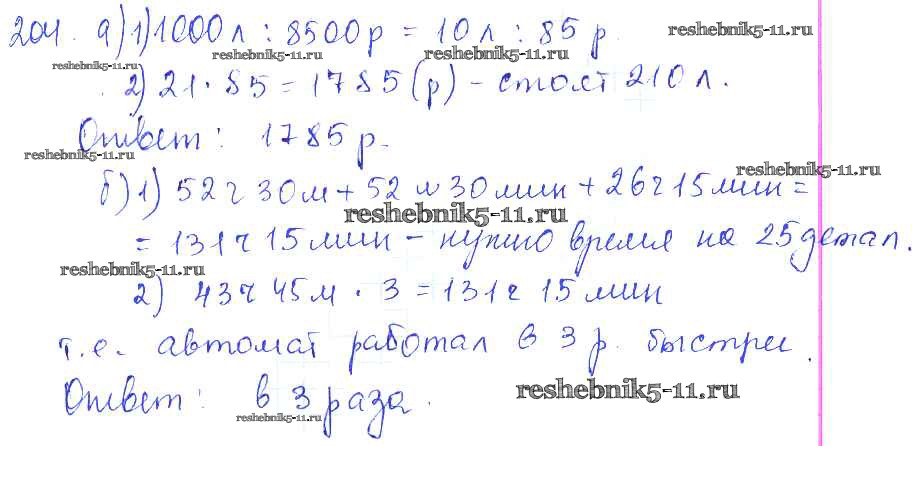 204. а) 1) 1000 л : 8500 р = 10 л : 85 р.
reshebnik5-11.ru
reshebnik5-11.ru reshebnik5-11.ru
reshebnik5-11.ru
2) 21 · 85 = 1785 (р) - стоят 210 л.
Ответ: 1785 р.
reshebnik5-11.ru
reshebnik5-11.ru
б) 1) 52 ч 30 м + 52 ч 30 мин + 26 ч 15 мин =
reshebnik5-11.ru
= 131 ч 15 мин - нужно время на 25 детал.
reshebnik5-11.ru
2) 43 ч 45 м · 3 = 131 ч 15 мин
т.е. автомат работал в 3 р. быстрее.
Ответ: в 3 раза.
reshebnik5-11.ru
reshebnik5-11.ru